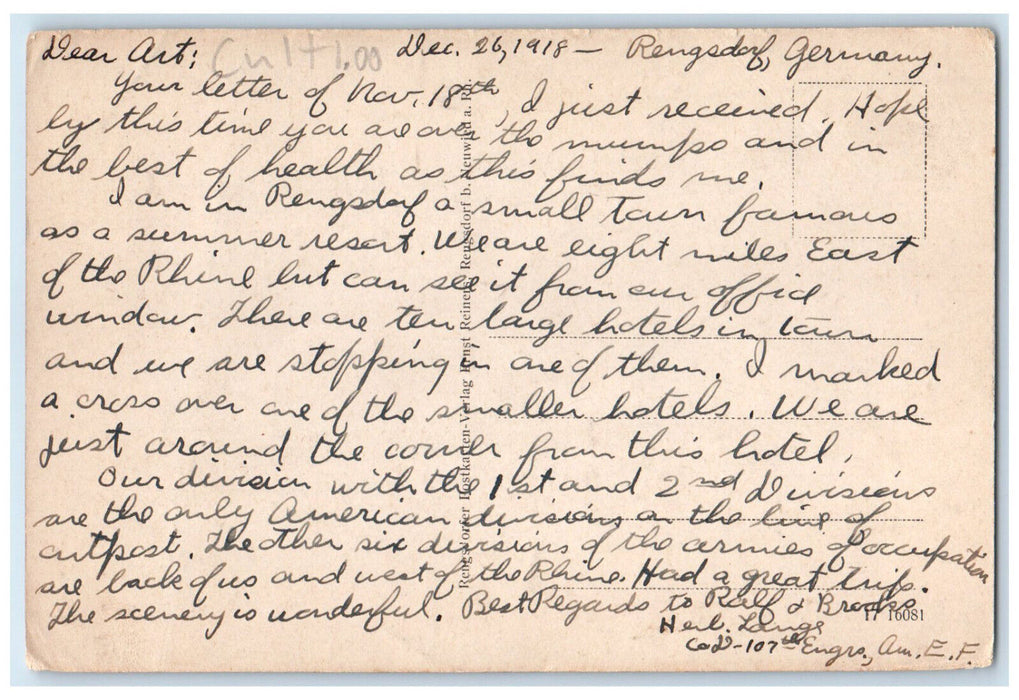 Dear Art; Dec. 26, 1918 — Rengsdorf, Germany.
Your letter of Nov. 18th, I just received. Hope
by this time you are over the mumps and in
the best of health as this finds me.
I am in Rengsdorf a small town famous
as a summer resort. We are eight miles East
of the Rhine but can see it from our office
window. There are ten large hotels in town
and we are stopping in one of them. I marked
a cross over one of the smaller hotels. We are
just around the corner from this hotel.
Our division with the 1st and 2nd Divisions
are the only American divisions on the line of
outpost. The other six divisions of the armies of occupation
are back of us and west of the Rhine. Had a great trip.
The scenery is wonderful. Best Regards to Ralf & Brooks.
Herb. Lange
Co D - 107th Engrs., Am. E. F.
Rengsdorfer Postkarten-Verlag Ernst Reinery, Rengsdorf b. Neuwied a. Rh.
17 16081